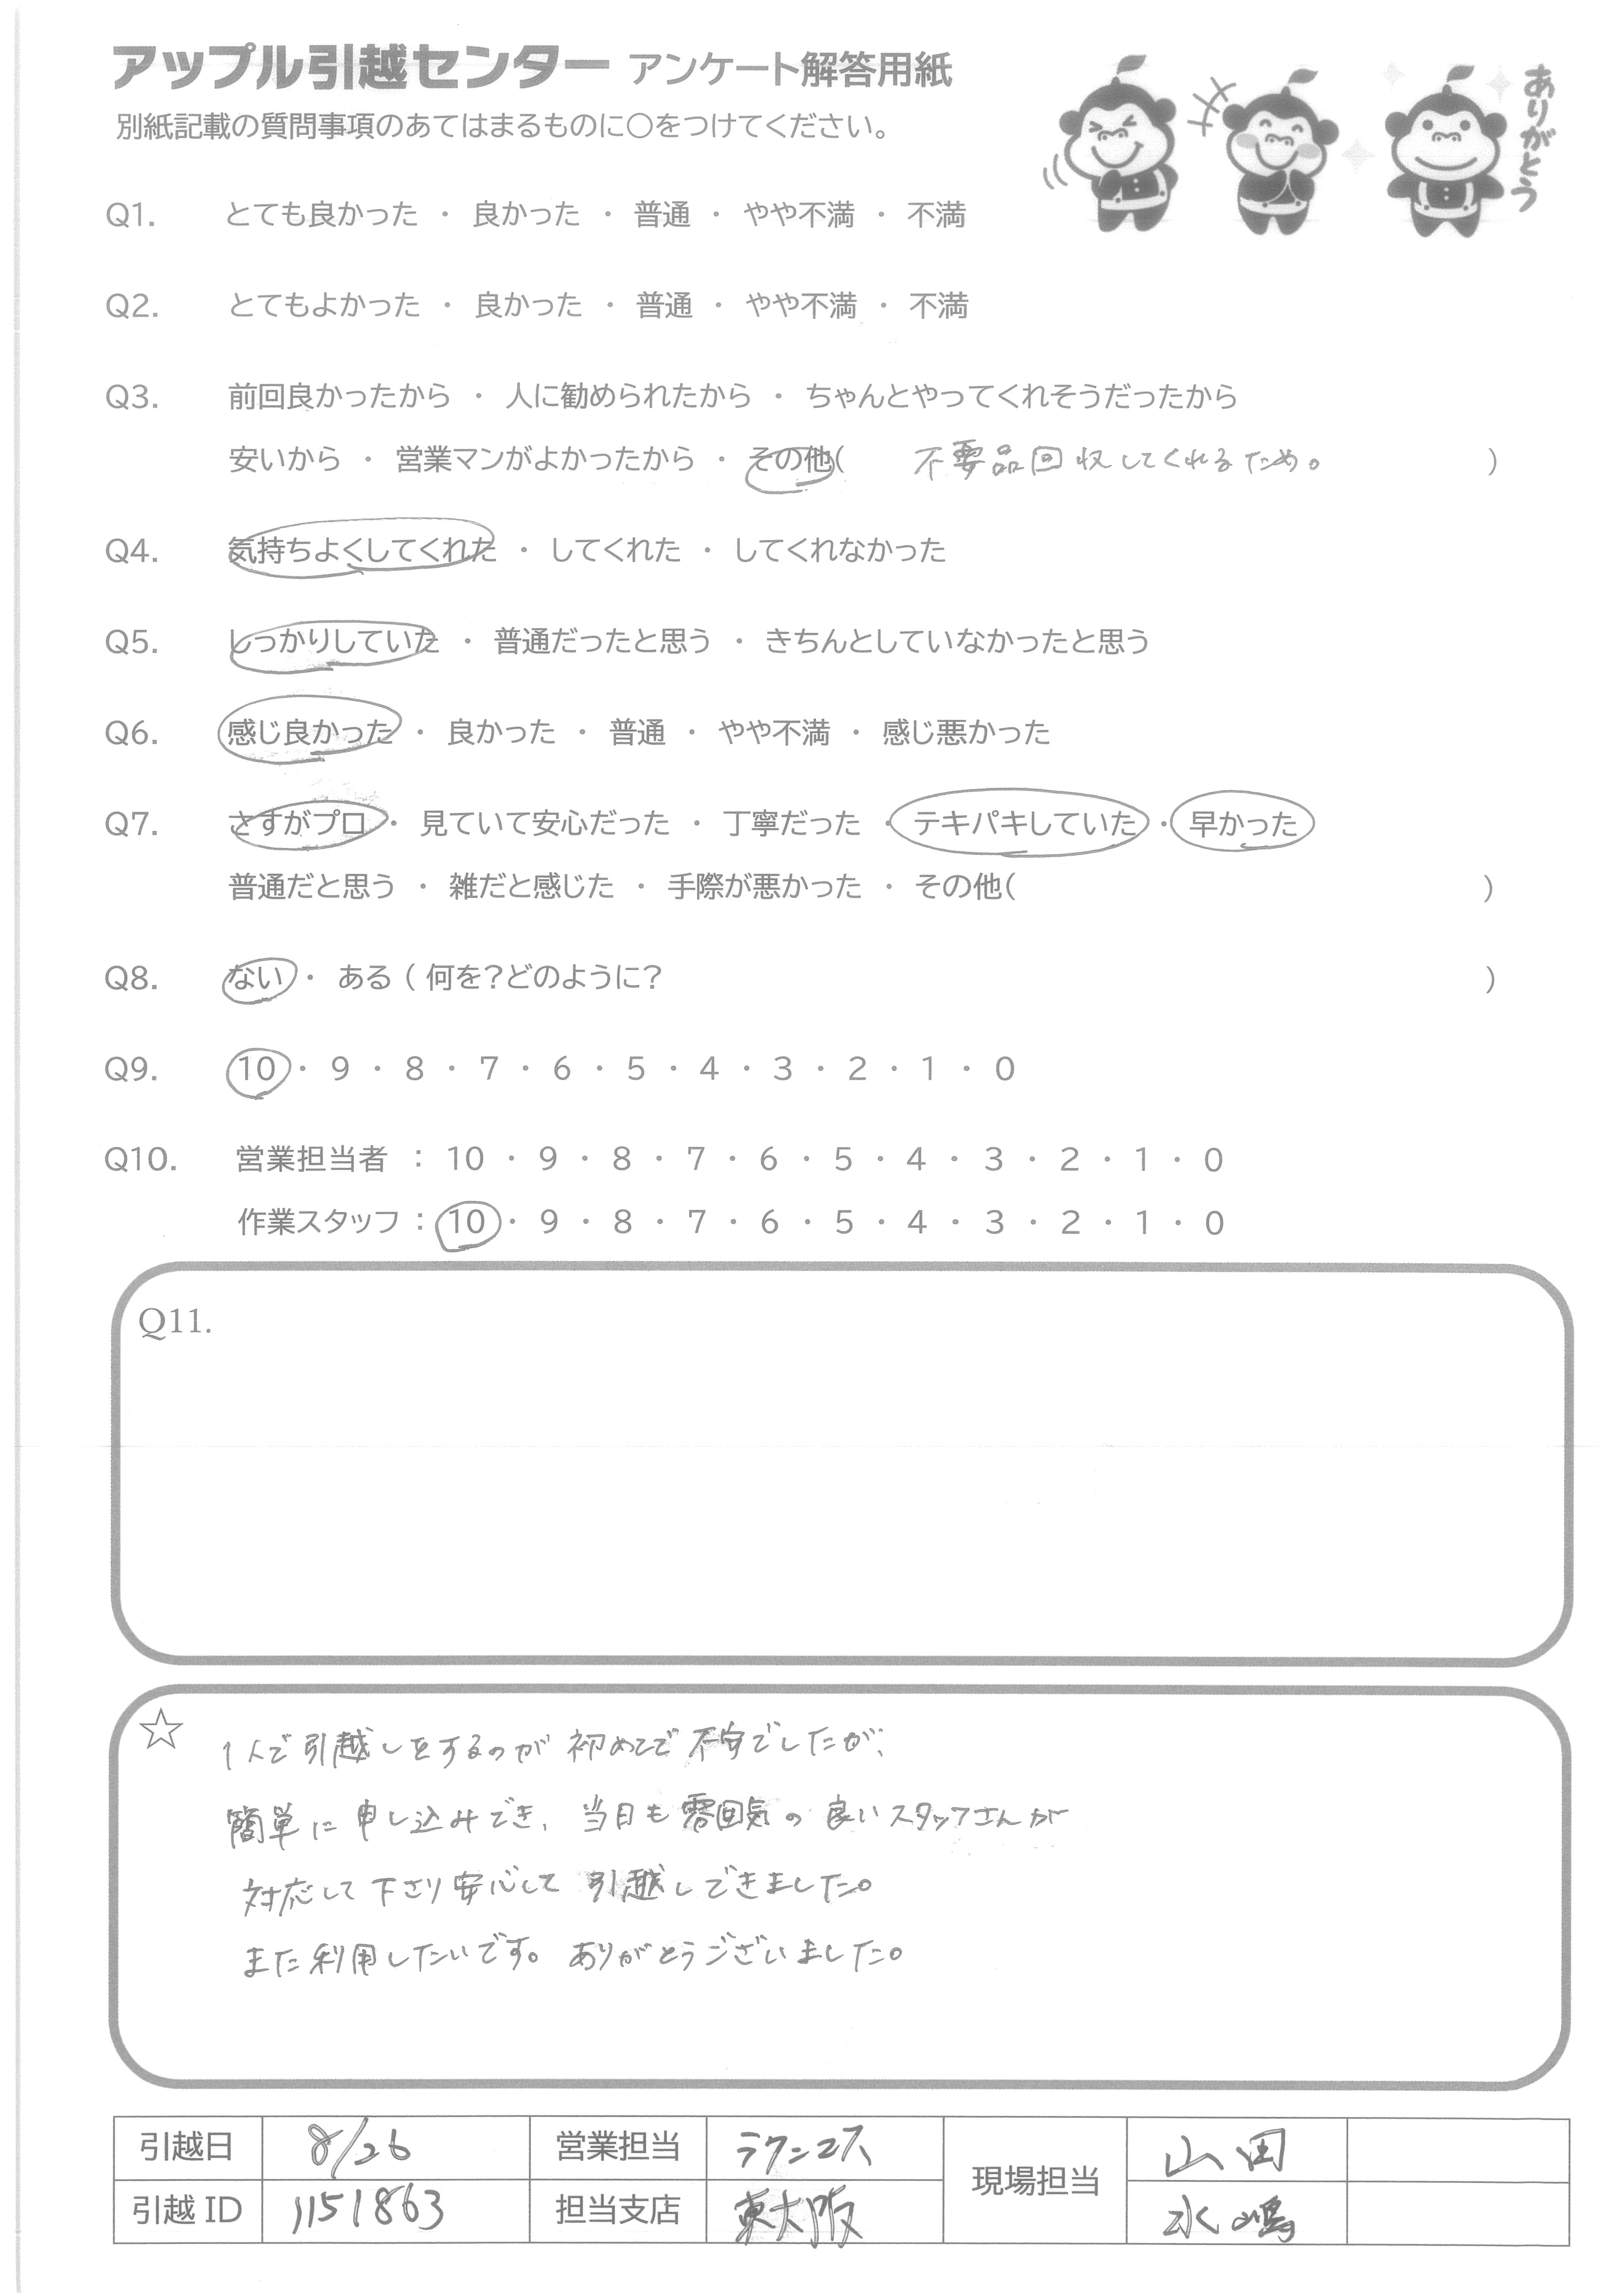 アップル引越センター アンケート解答用紙
別紙記載の質問事項のあてはまるものに○をつけてください。
ありがとう
Q1. とても良かった ・ 良かった ・ 普通 ・ やや不満 ・ 不満
Q2. とてもよかった ・ 良かった ・ 普通 ・ やや不満 ・ 不満
Q3. 前回良かったから ・ 人に勧められたから ・ ちゃんとやってくれそうだったから
安いから ・ 営業マンがよかったから ・ その他( 不要品回収してくれるため。 )
Q4. 気持ちよくしてくれた ・ してくれた ・ してくれなかった
Q5. しっかりしていた ・ 普通だったと思う ・ きちんとしていなかったと思う
Q6. 感じ良かった ・ 良かった ・ 普通 ・ やや不満 ・ 感じ悪かった
Q7. さすがプロ ・ 見ていて安心だった ・ 丁寧だった ・ テキパキしていた ・ 早かった
普通だと思う ・ 雑だと感じた ・ 手際が悪かった ・ その他( )
Q8. ない ・ ある ( 何を?どのように? )
Q9. 10 ・ 9 ・ 8 ・ 7 ・ 6 ・ 5 ・ 4 ・ 3 ・ 2 ・ 1 ・ 0
Q10. 営業担当者 : 10 ・ 9 ・ 8 ・ 7 ・ 6 ・ 5 ・ 4 ・ 3 ・ 2 ・ 1 ・ 0
作業スタッフ : 10 ・ 9 ・ 8 ・ 7 ・ 6 ・ 5 ・ 4 ・ 3 ・ 2 ・ 1 ・ 0
Q11.
☆ 1人で引越しをするのが初めてで不安でしたが、
簡単に申し込みでき、当日も雰囲気の良いスタッフさんが
対応して下さり安心して引越しできました。
また利用したいです。ありがとうございました。
引越日 8/26 営業担当 ラクニコス 現場担当 山田
引越 ID 1151863 担当支店 東大阪 水嶋